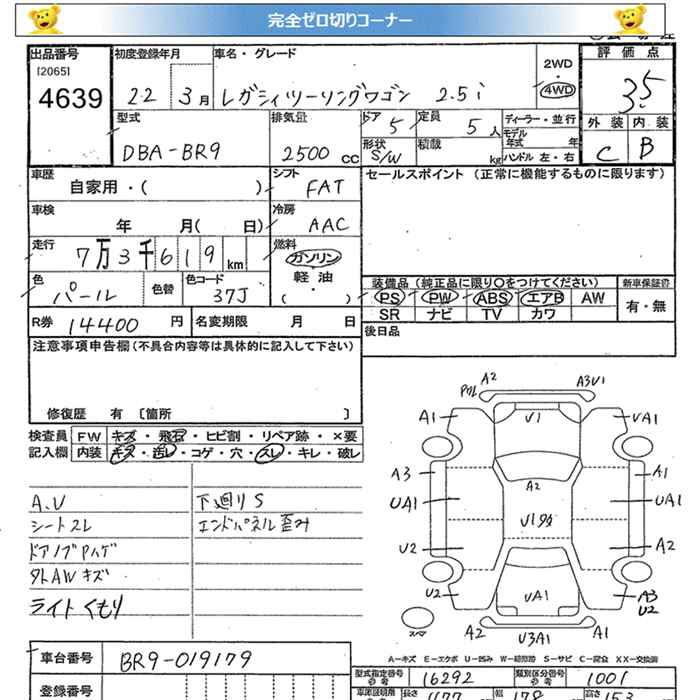 完全ゼロ切りコーナー
出品番号
[2065]
4639
初度登録年月
22 3月
車名・グレード
レガシィツーリングワゴン 2.5i
2WD
・
4WD
評価点
3.5
外装 内装
C B
型式
DBA-BR9
排気量
2500 CC
ドア
5
定員
5人
形状
S/W
積載
kg
ディーラー・並行
モデル
年式 年
ハンドル 左・右
車歴
自家用・( )
シフト
FAT
セールスポイント (正常に機能するものに限ります)
車検
年 月( 日)
冷房
AAC
走行
7万3千619km
燃料
ガソリン
・
軽油
( )
色
パール
色替
色コード
37J
装備品 (純正品に限り○をつけてください)
新車保証書
PS PW ABS エアB AW
有・無
SR ナビ TV カワ
R券 14400 円
名変期限 月 日
後日品
注意事項申告欄 (不具合内容等は具体的に記入して下さい)
修復歴 有 〔箇所 〕
検査員
記入欄
FW キズ・飛石・ヒビ割・リペア跡・×要
内装 キズ・汚レ・コゲ・穴・スレ・キレ・破レ
A.V
シートスレ
ドアノブPハゲ
外AWキズ
ライトくもり
下廻りS
エンドパネル歪み
PクレA2
A3U1
A1
U1
UA1
A3
A2
A1
UA1
U1多
UA1
U2
A2
U2
UA1
A3
U2
スペア
A2
U3A1
A1
A-キズ E-エクボ U-凹み W-補修跡 S-サビ C-腐食 XX-交換済
車台番号 BR9-019179
型式指定番号
参考
16292
類別区分番号
参考
1001
登録番号
車検証明用
参考
長さ
477
幅
178
高さ
153